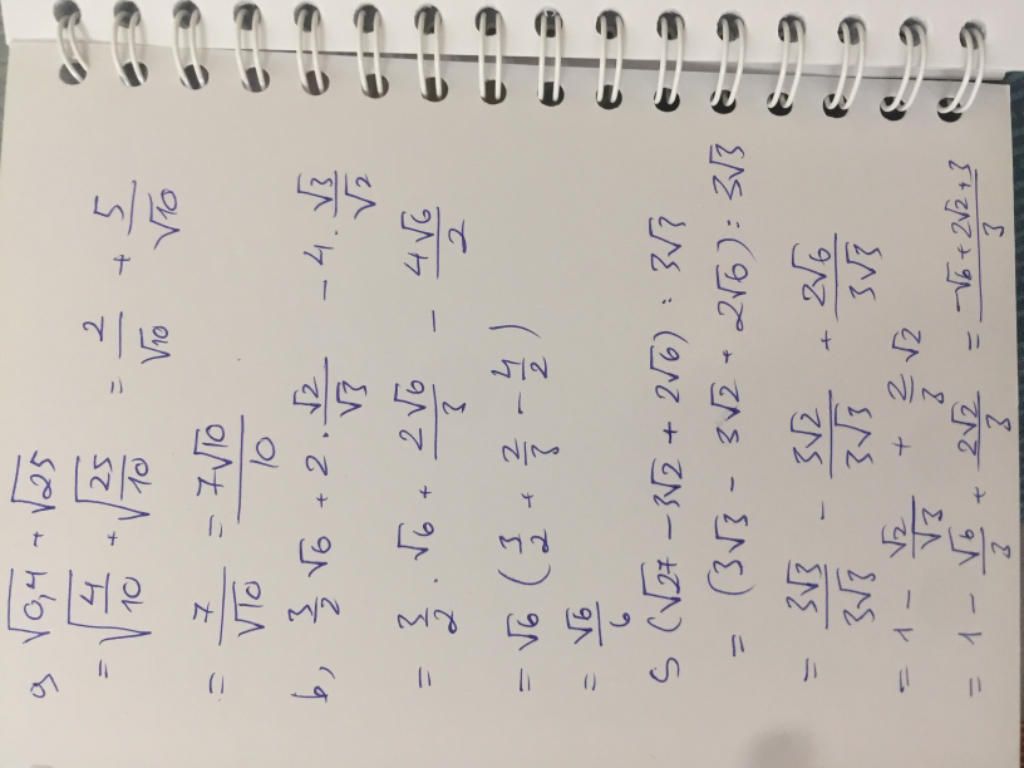 a, √0,4 + √25
= √(4/10) + √(25/10) = 2/√10 + 5/√10
= 7/√10 = 7√10/10
b, 3/2 √6 + 2 · √2/√3 - 4 · √3/√2
= 3/2 · √6 + 2√6/3 - 4√6/2
= √6 (3/2 + 2/3 - 4/2)
= √6/6
c, (√27 - 3√2 + 2√6) : 3√3
= (3√3 - 3√2 + 2√6) : 3√3
= 3√3/3√3 - 3√2/3√3 + 2√6/3√3
= 1 - √2/√3 + 2/3 √2
= 1 - √6/3 + 2√2/3 = -√6 + 2√2 + 3/3